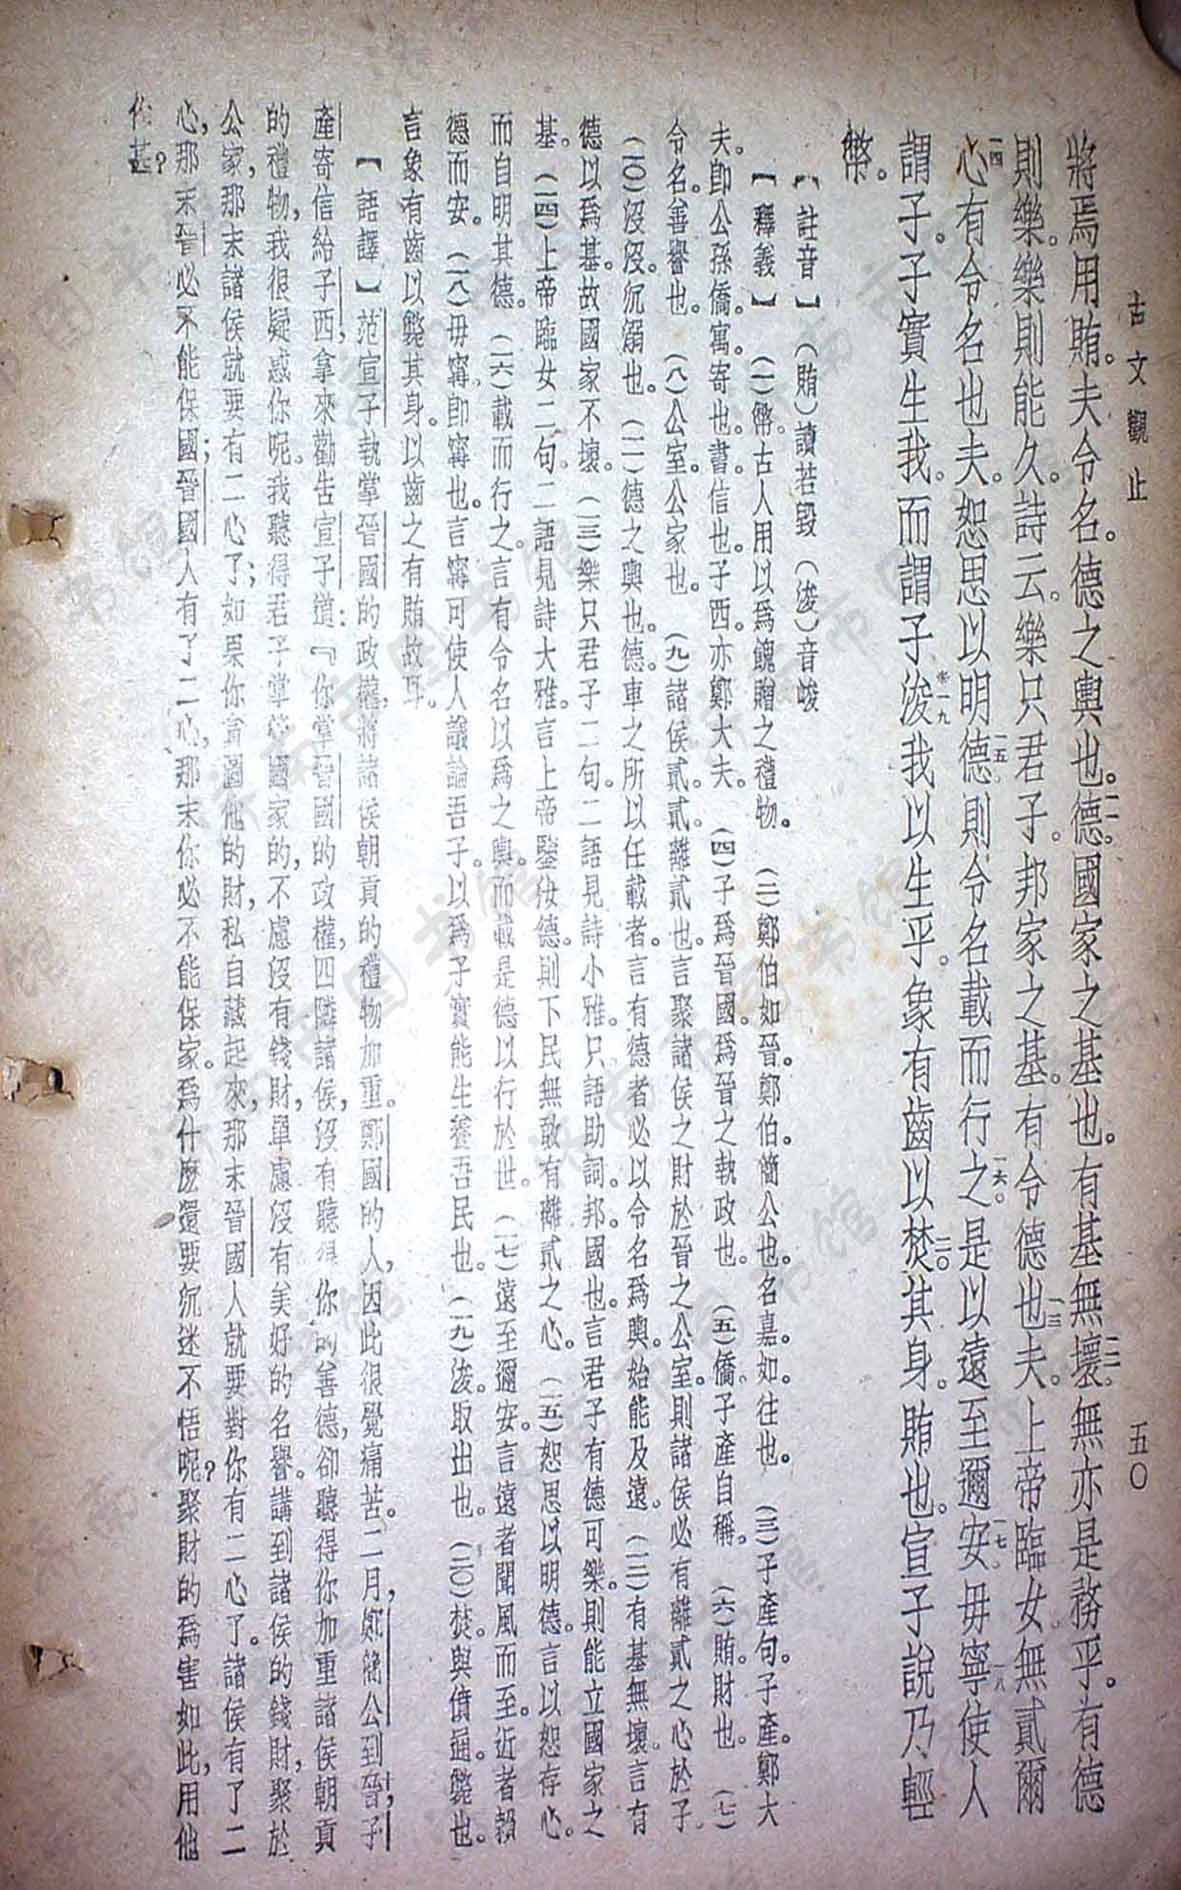 古文觀止
五〇
將焉用賄。夫令名。德之輿也。德。國家之基也。有基無壞。無亦是務乎。有德
則樂。樂則能久。詩云。樂只君子。邦家之基。有令德也夫。上帝臨女。無貳爾
心。有令名也夫。恕思以明德。則令名載而行之。是以遠至邇安。毋寧使人
謂子。子實生我。而謂子浚我以生乎。象有齒以焚其身。賄也。宣子說。乃輕
幣。
【註音】（賄）讀若毀（浚）音峻
【釋義】（一）幣。古人用以爲餽贈之禮物。（二）鄭伯如晉。鄭伯。簡公也。名嘉。如。往也。（三）子產句。子產。鄭大
夫。卽公孫僑。寓。寄也。書。信也。子西。亦鄭大夫。（四）子爲晉國。爲晉之執政也。（五）僑。子產自稱。（六）賄。財也。（七）
令名。善譽也。（八）公室。公家也。（九）諸侯貳。貳。離貳也。言聚諸侯之財於晉之公室。則諸侯必有離貳之心於子
（一〇）沒沒。沉溺也。（一一）德之輿也。德。車之所以任載者。言有德者必以令名爲輿。始能及遠。（一二）有基無壞。言有
德以爲基。故國家不壞。（一三）樂只君子二句。二語見詩小雅。只。語助詞。邦。國也。言君子有德可樂。則能立國家之
基。（一四）上帝臨女二句。二語見詩大雅。言上帝鑒汝德。則下民無敢有離貳之心。（一五）恕思以明德。言以恕存心。
而自明其德。（一六）載而行之。言有令名以爲之輿。而載是德以行於世。（一七）遠至邇安。言遠者聞風而至。近者賴
德而安。（一八）毋寗。卽寗也。言寗可使人議論吾子。以爲子實能生養吾民也。（一九）浚。取出也。（二〇）焚。與僨通。斃也。
言象有齒以斃其身。以齒之有賄故耳。
【語譯】范宣子執掌晉國的政權，將諸侯朝貢的禮物加重。鄭國的人，因此很覺痛苦。二月，鄭簡公到晉，子
產寄信給子西，拿來勸告宣子道：『你掌晉國的政權，四隣諸侯，沒有聽得你的善德，卻聽得你加重諸侯朝貢
的禮物，我很疑惑你呢。我聽得君子掌管國家的，不慮沒有錢財，單慮沒有美好的名譽。講到諸侯的錢財，聚於
公家，那末諸侯就要有二心了；如果你貪圖他的財，私自藏起來，那末晉國人就要對你有二心了。諸侯有了二
心，那末晉必不能保國；晉國人有了二心，那末你必不能保家。爲什麼還要沉迷不悟呢？聚財的爲害如此，用他
作甚？